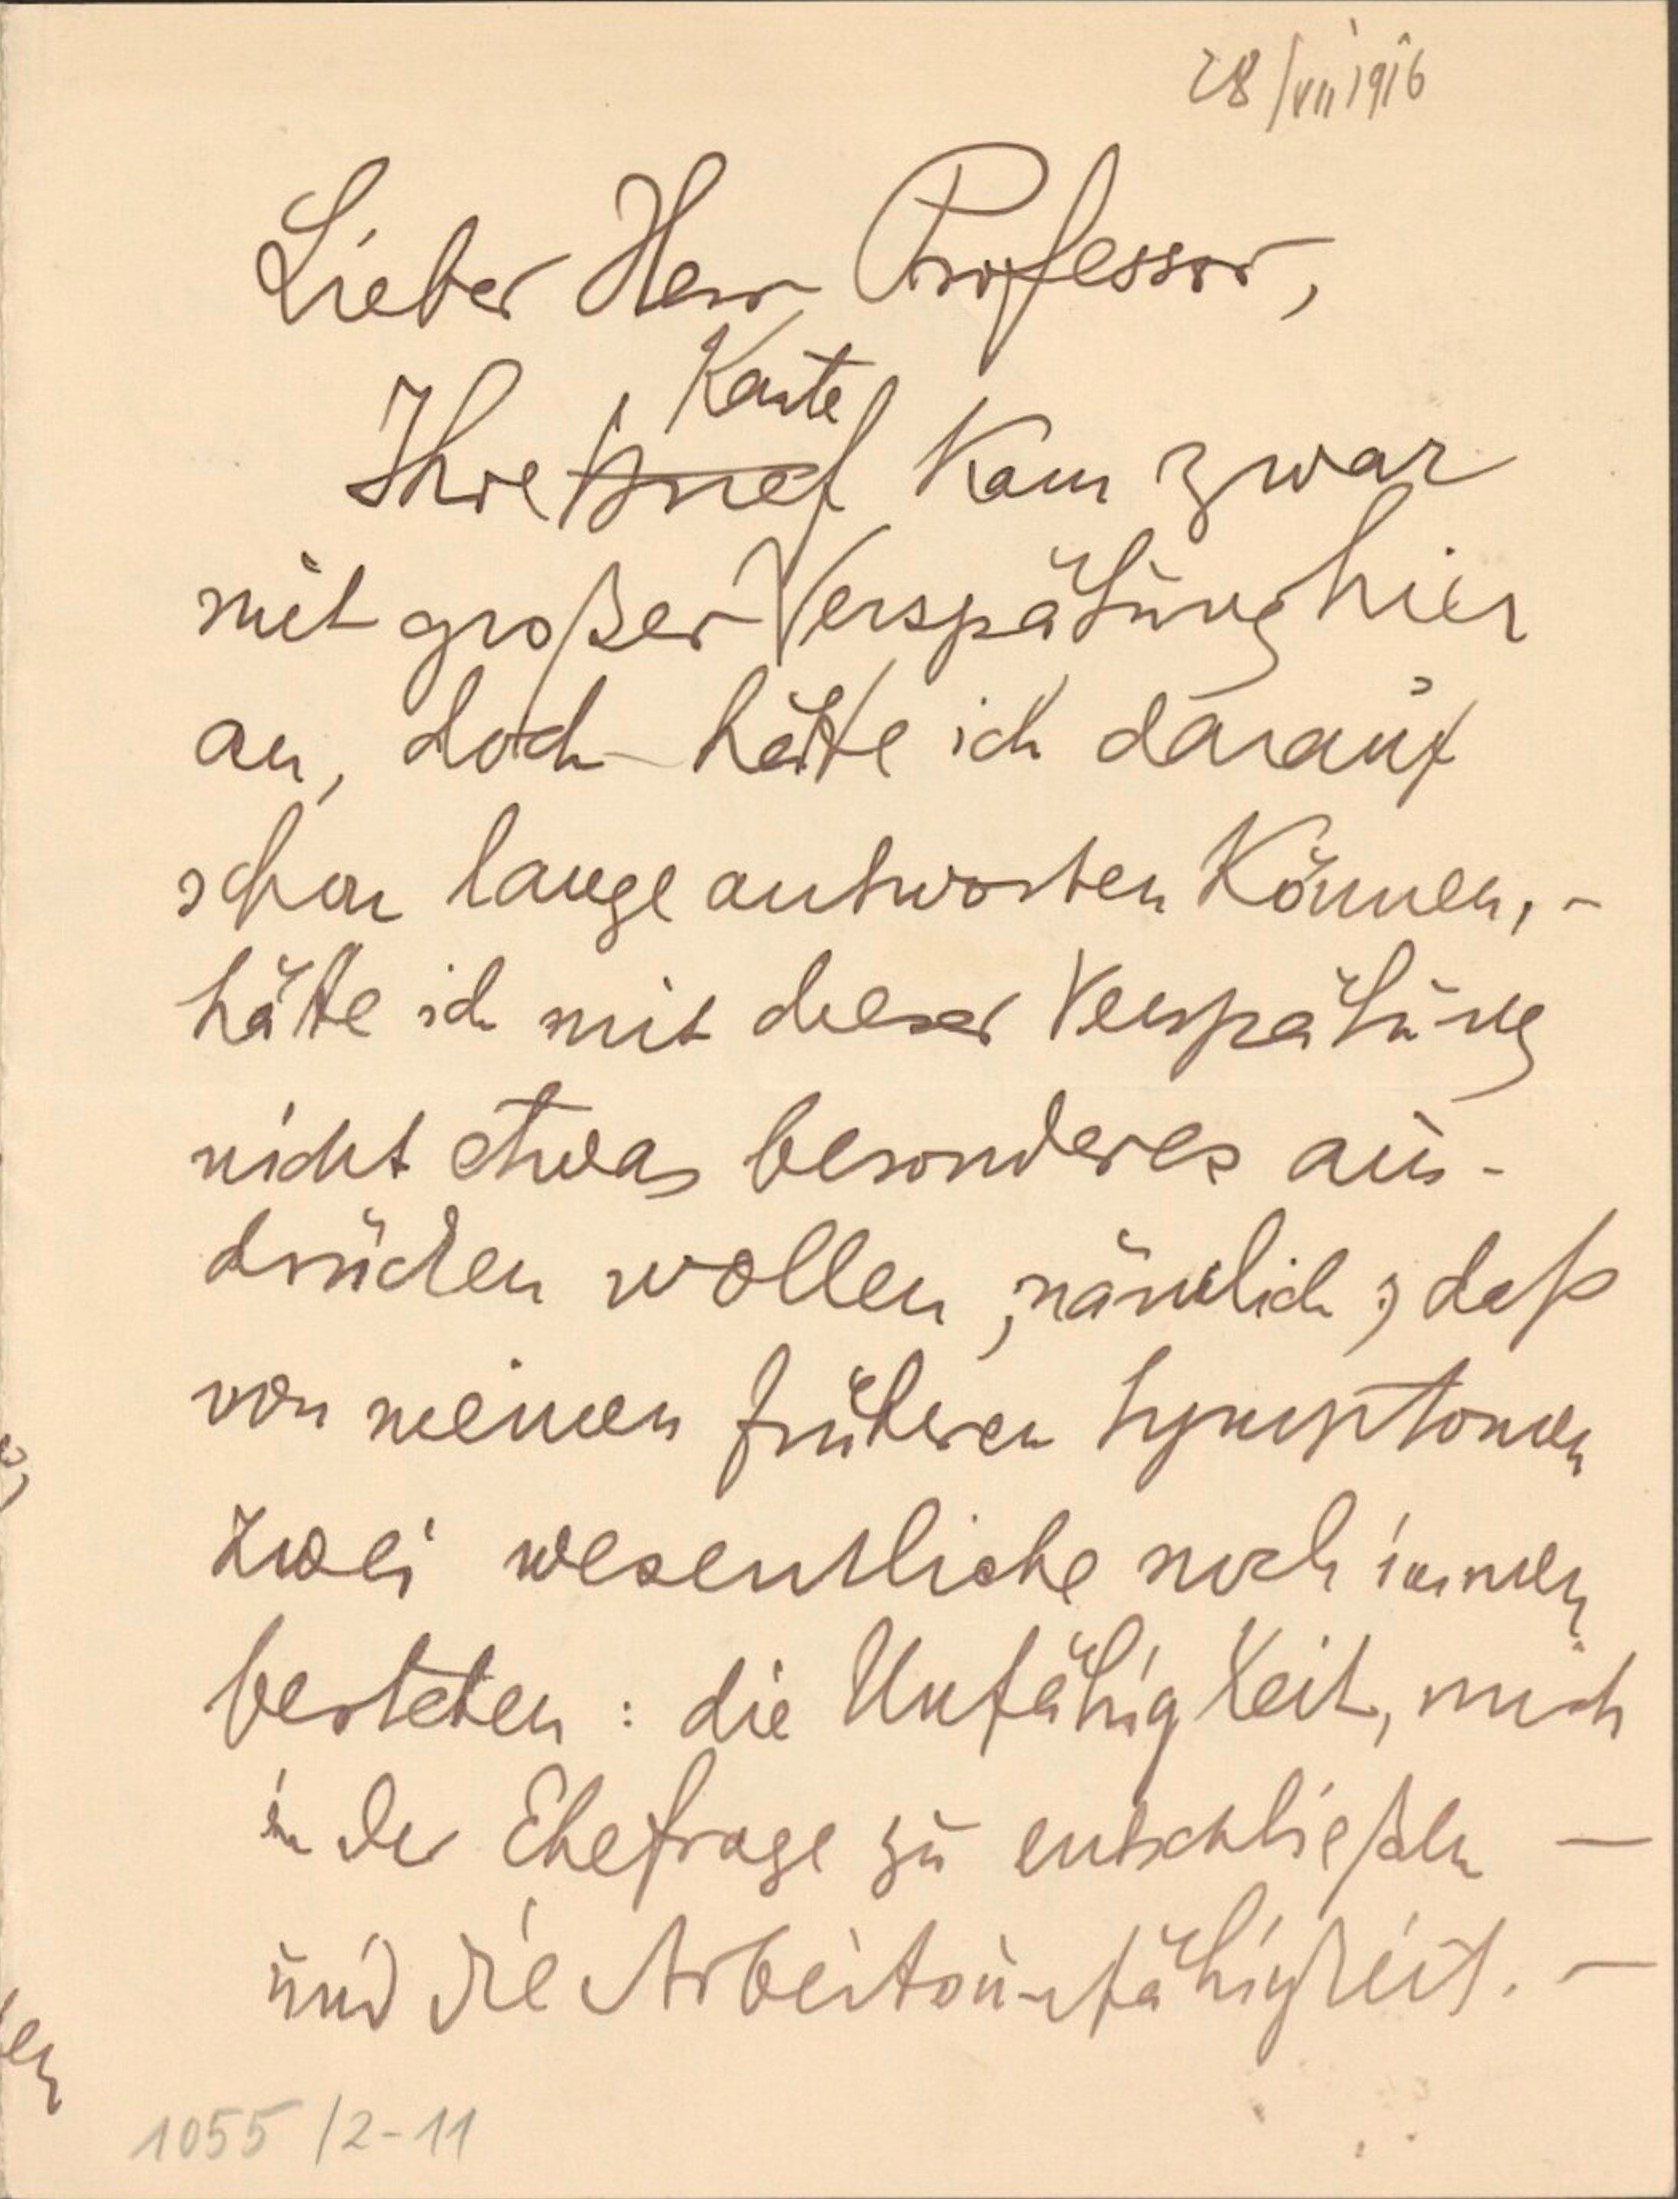 28/VII 1916
Lieber Herr Professor,
Karte
Ihre Brief kam zwar
mit großer Verspätung hier
an, doch hätte ich darauf
schon lange antworten können, -
hätte ich mit dieser Verspätung
nicht etwas besonderes aus-
drücken wollen, nämlich, daß
von meinen früheren Symptomen
zwei wesentliche noch immer
bestehen: die Unfähigkeit, mich
in der Ehefrage zu entschließen —
und die Arbeitsunfähigkeit. —
1055/2-11